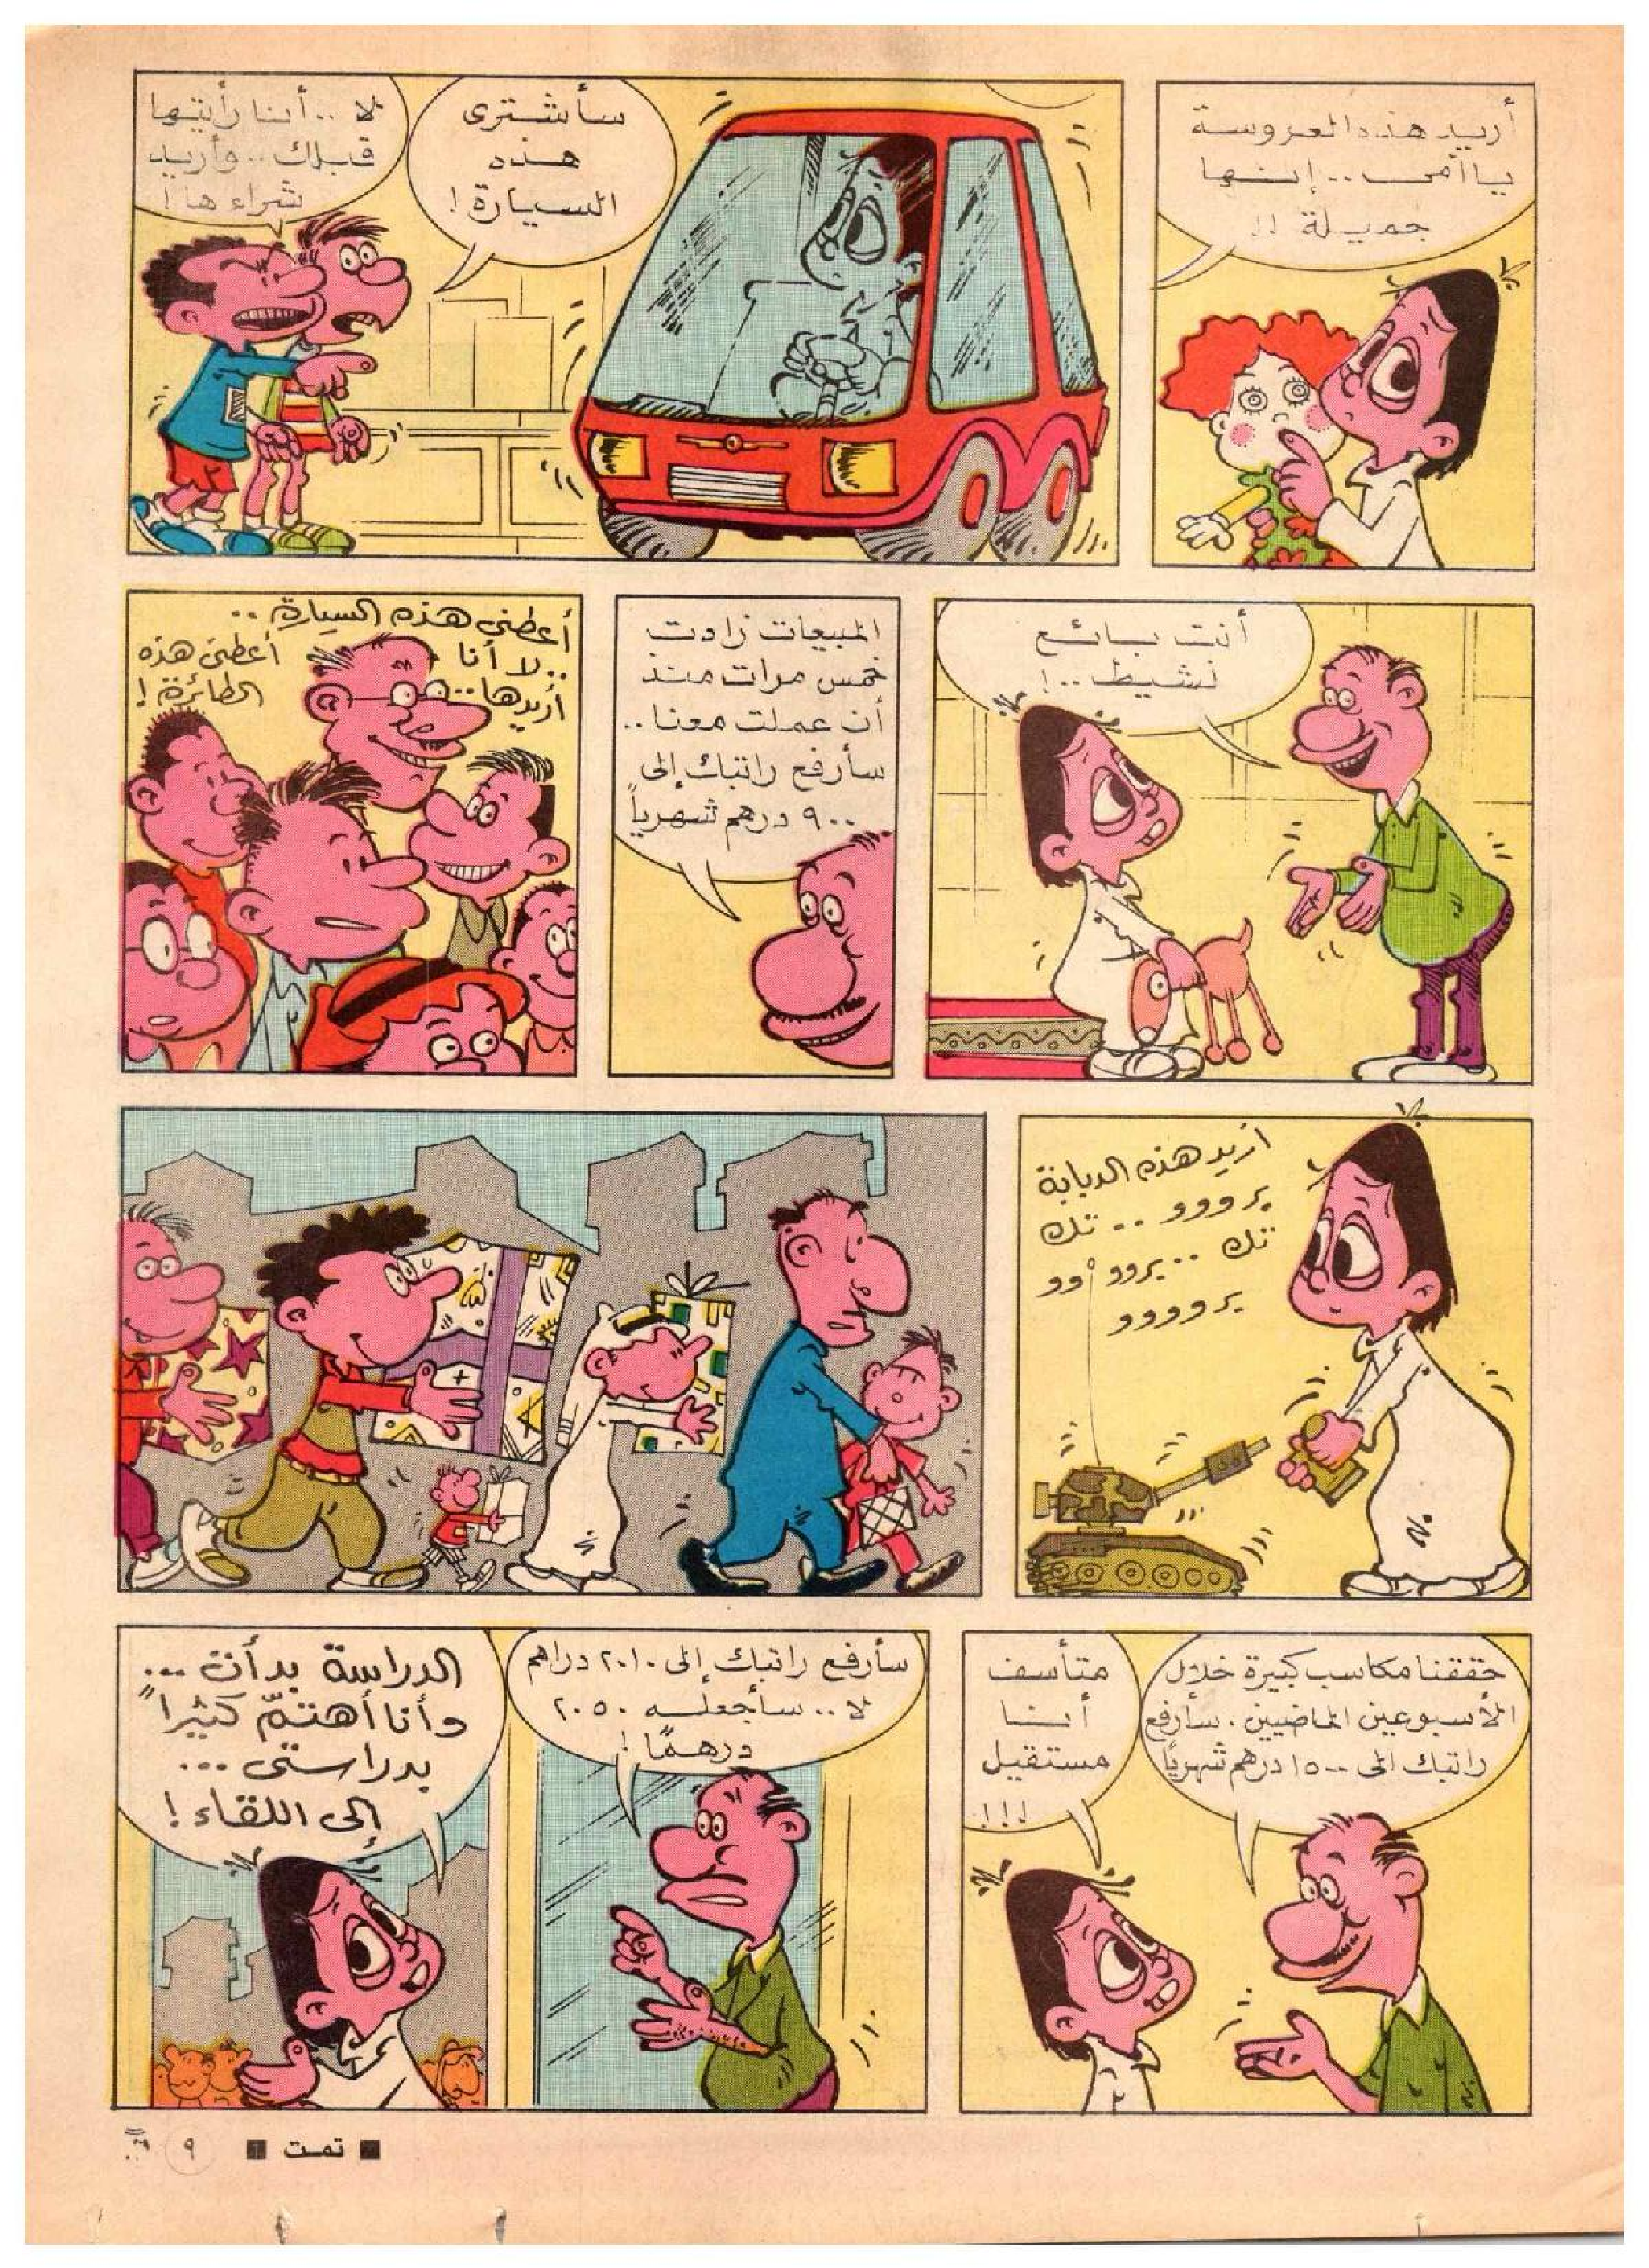 أريد هذه العروسة
يا أمى .. إنها
جميلة !!
سأشترى
هذه
السيارة !
لا .. أنا رأيتها
قبلك .. وأريد
شراءها !
أنت بائع
نشيط .. !
المبيعات زادت
خمس مرات منذ
أن عملت معنا ..
سأرفع راتبك إلى
٩٠٠ درهم شهرياً
أعطنى هذه السيارة ..
.. لا أنا
أريدها ..
أعطنى هذه
الطائرة !
أريد هذه الدبابة
يرووو .. تك
تك .. يرووأوو
يروووو
حققنا مكاسب كبيرة خلال
الأسبوعين الماضيين . سأرفع
راتبك الى ١٥٠٠ درهم شهرياً
متأسف
أنا
مستقيل
!!!
سأرفع راتبك إلى ٢٠١٠ دراهم
لا .. سأجعله ٢٠٥٠
درهمًا !
الدراسة بدأت ...
وأنا أهتمّ كثيراً
بدراستى ...
إلى اللقاء !
■ تمت ■
٩